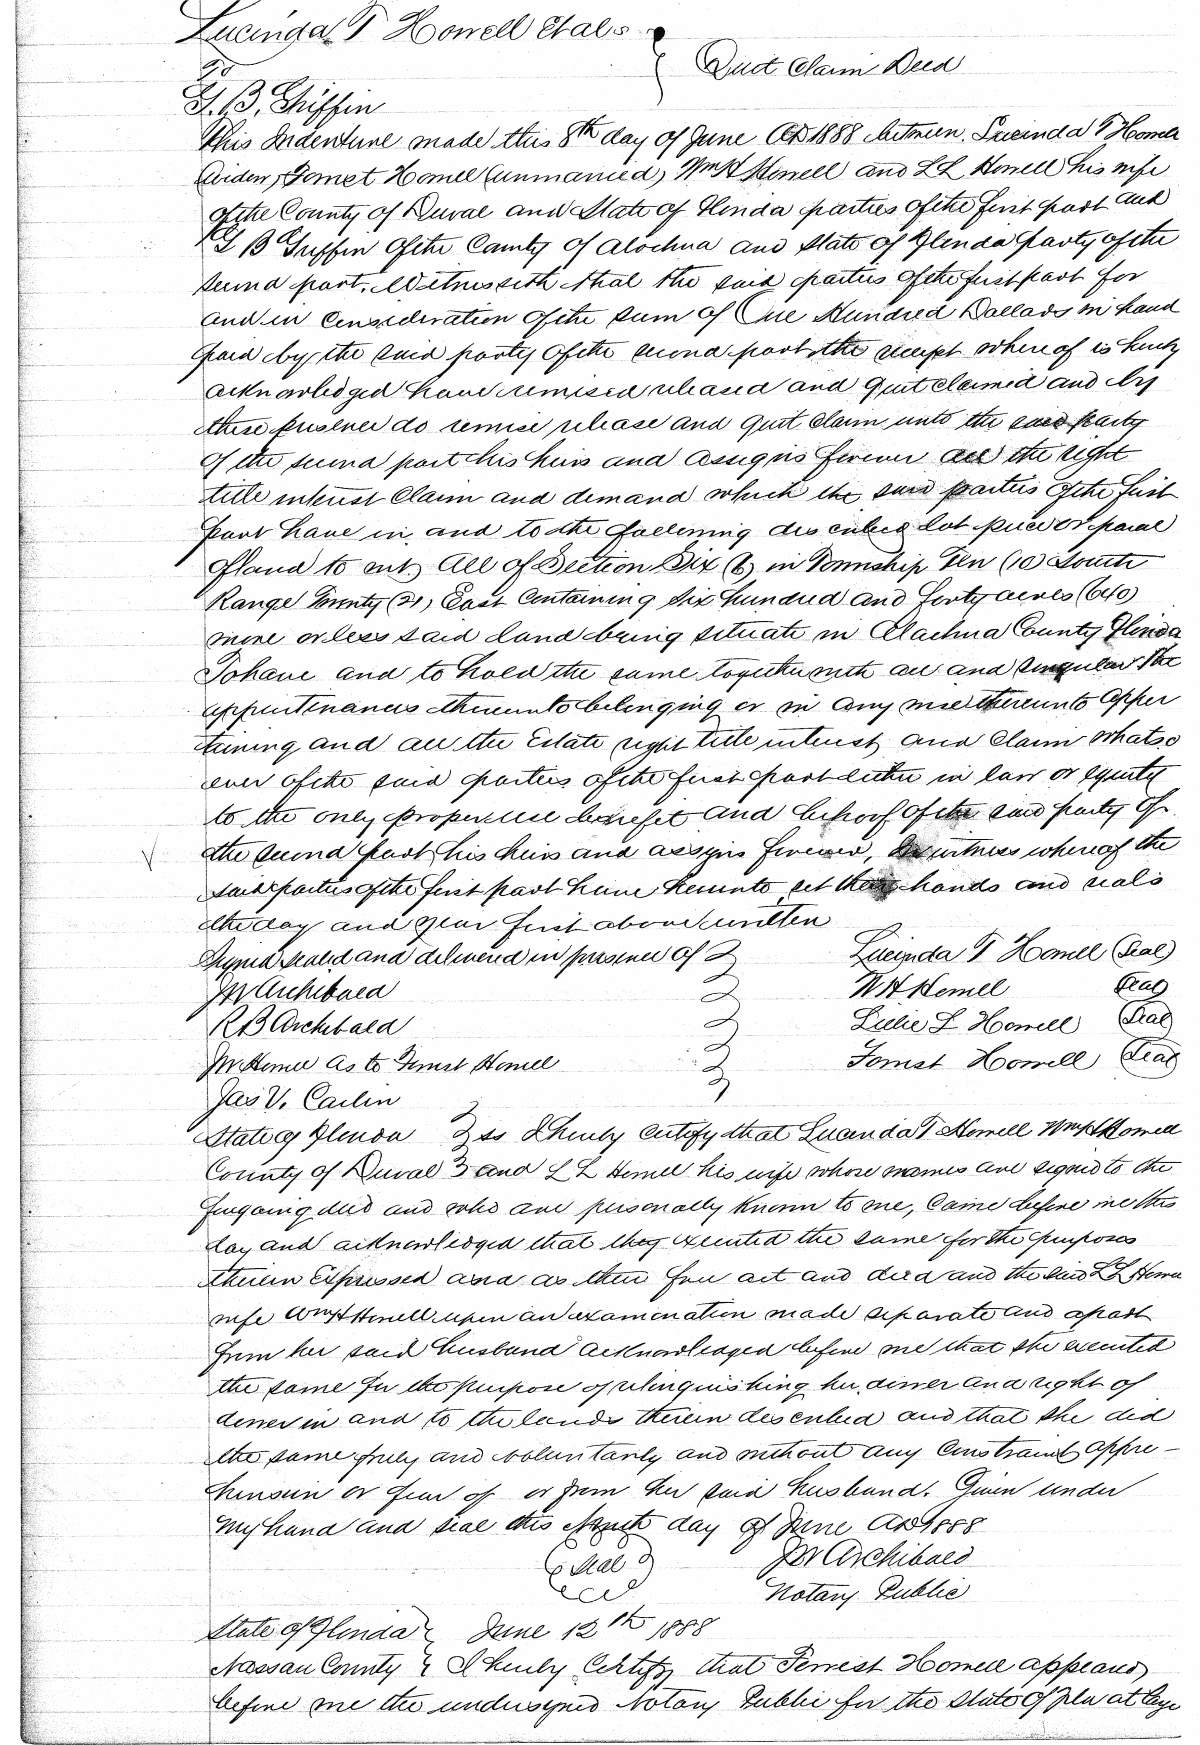 Lucinda T Howell et als
To
Quit Claim Deed
T. B. Griffin
This Indenture made this 8th day of June AD 1888 between Lucinda T Howell
Widow, Forrest Howell (unmarried) Wm H Howell and L L Howell his wife
of the County of Duval and State of Florida parties of the first part and
T B Griffin of the County of Alachua and State of Florida party of the
second part, Witnesseth that the said parties of the first part for
and in Consideration of the sum of One Hundred Dollars in hand
paid by the said party of the second part, the receipt where of is hereby
acknowledged have remised released and quit claimed and by
these presence do remise release and quit claim unto the said party
of the second part his heirs and assigns forever all the right
title interest claim and demand which the said parties of the first
part have in and to the following described lot piece or parcel
of land to wit, All of Section Six (6) in Township Ten (10) South
Range Twenty (21) East containing six hundred and forty acres (640)
more or less said land being situate in Alachua County Florida
To have and to hold the same together with all and singular the
appurtenances thereunto belonging or in any wise thereunto apper
taining and all the Estate right title interest and claim whatso
ever of the said parties of the first part either in law or equity
to the only proper use benefit and behoof of the said party of
the second part his heirs and assigns forever, In witness whereof the
said parties of the first part have hereunto set their hands and seals
the day and year first above written
Signed sealed and delivered in presence of Lucinda T Howell (Seal)
JM Archibald WH Howell Seal
R B Archibald Lulie L Howell (Seal)
JM Howell as to Forrest Howell Forrest Howell (Seal)
Jas V. Carlin
State of Florida ss I hereby certify that Lucinda T Howell Wm H Howell
County of Duval and L L Howell his wife whose names are signed to the
foregoing deed and who are personally known to me, came before me this
day and acknowledged that they executed the same for the purposes
therein Expressed and as their free act and deed and the said L L Howell
wife Wm H Howell upon an examination made separate and apart
from her said husband acknowledged before me that she executed
the same for the purpose of relinquishing her dower and right of
dower in and to the lands therein described and that she did
the same freely and voluntarily and without any constraint appre-
hension or fear of or from her said husband. Given under
my hand and seal this day of June AD 1888
Seal JM Archibald
Notary Public
State of Florida June 12th 1888
Nassau County I hereby certify that Forrest Howell appeared
before me the undersigned Notary Public for the State of Fla at large